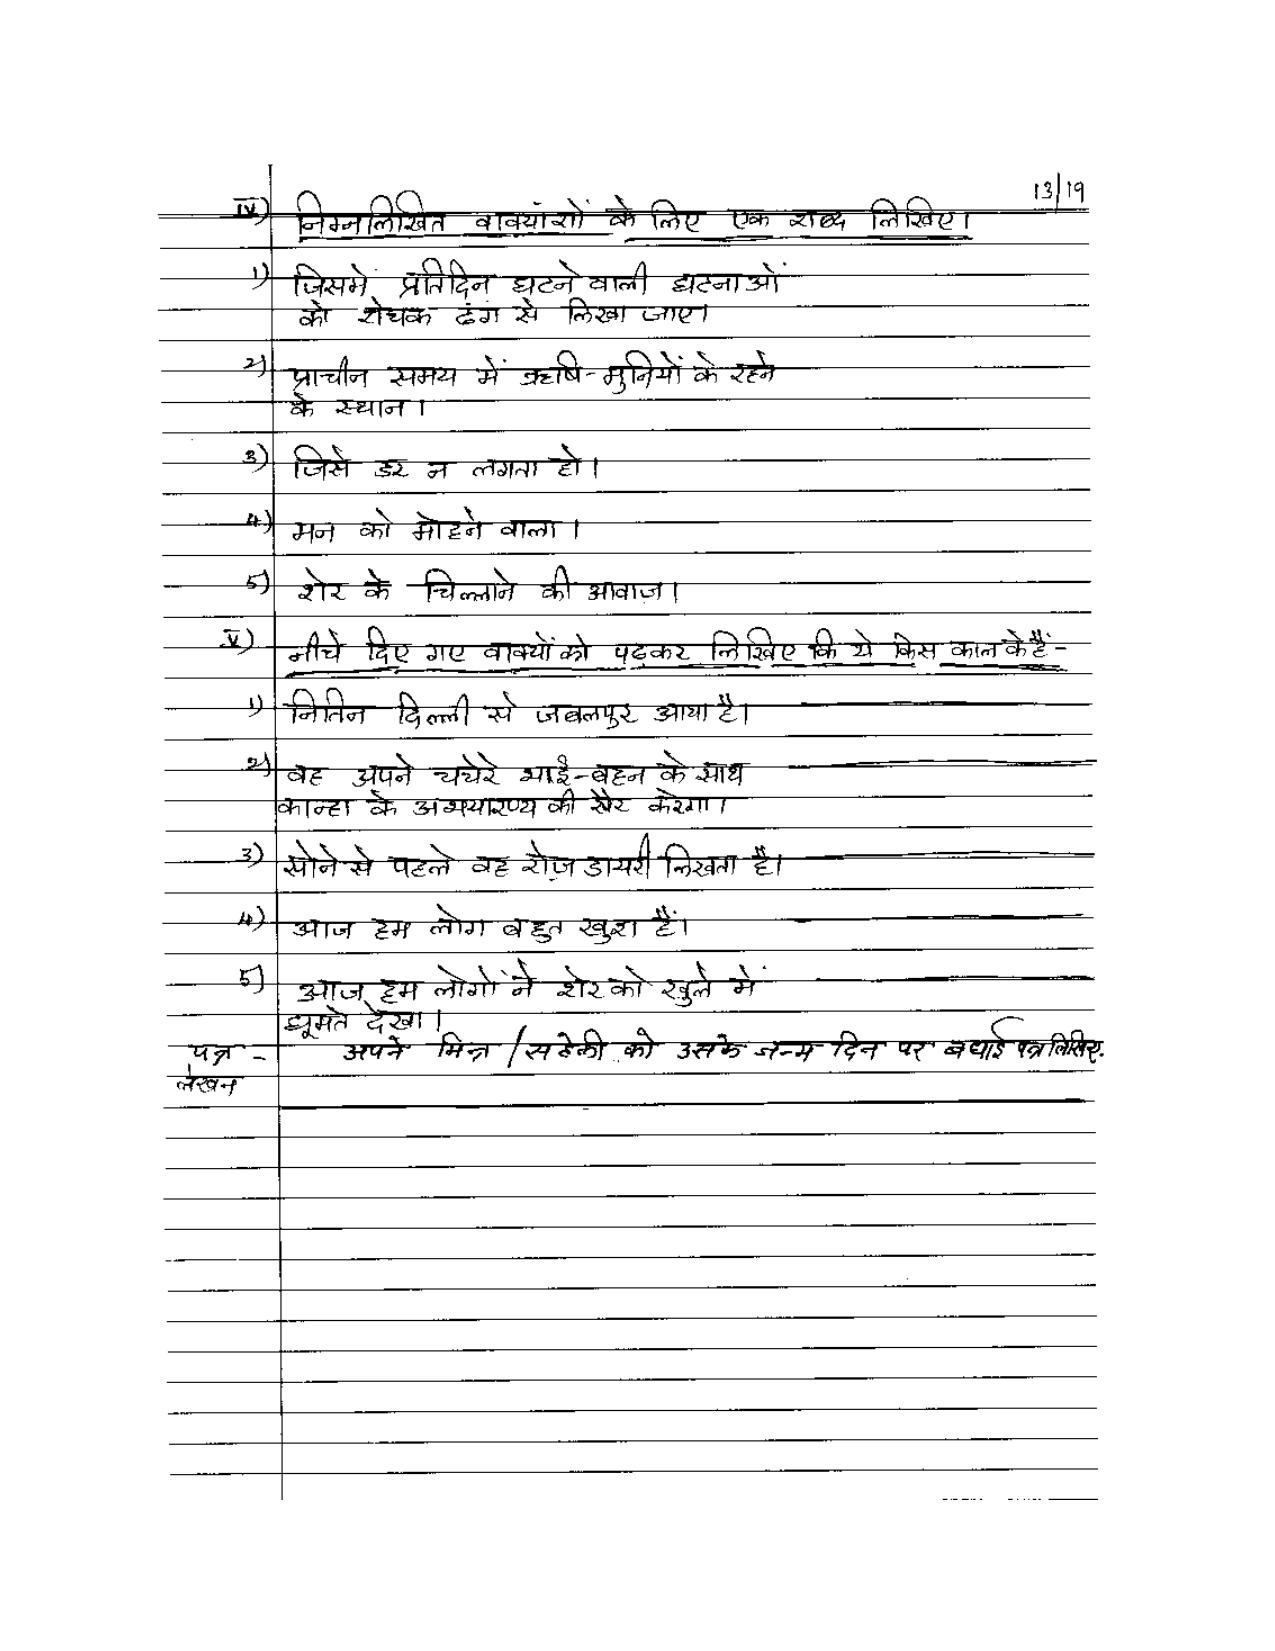 13/19
IV) निम्नलिखित वाक्यांशों के लिए एक शब्द लिखिए।
1) जिसमें प्रतिदिन घटने वाली घटनाओं
को रोचक ढंग से लिखा जाए।
2) प्राचीन समय में ऋषि-मुनियों के रहने
के स्थान।
3) जिसे डर न लगता हो।
4) मन को मोहने वाला।
5) शेर के चिल्लाने की आवाज़।
V) नीचे दिए गए वाक्यों को पढ़कर लिखिए कि ये किस काल के हैं-
1) नितिन दिल्ली से जबलपुर आया है।
2) वह अपने चचेरे भाई-बहन के साथ
कान्हा के अभयारण्य की सैर करेगा।
3) सोने से पहले वह रोज़ डायरी लिखता है।
4) आज हम लोग बहुत खुश हैं।
5) आज हम लोगों ने शेर को खुले में
घूमते देखा।
पत्र - अपने मित्र / सहेली को उसके जन्म दिन पर बधाई पत्र लिखिए.
लेखन